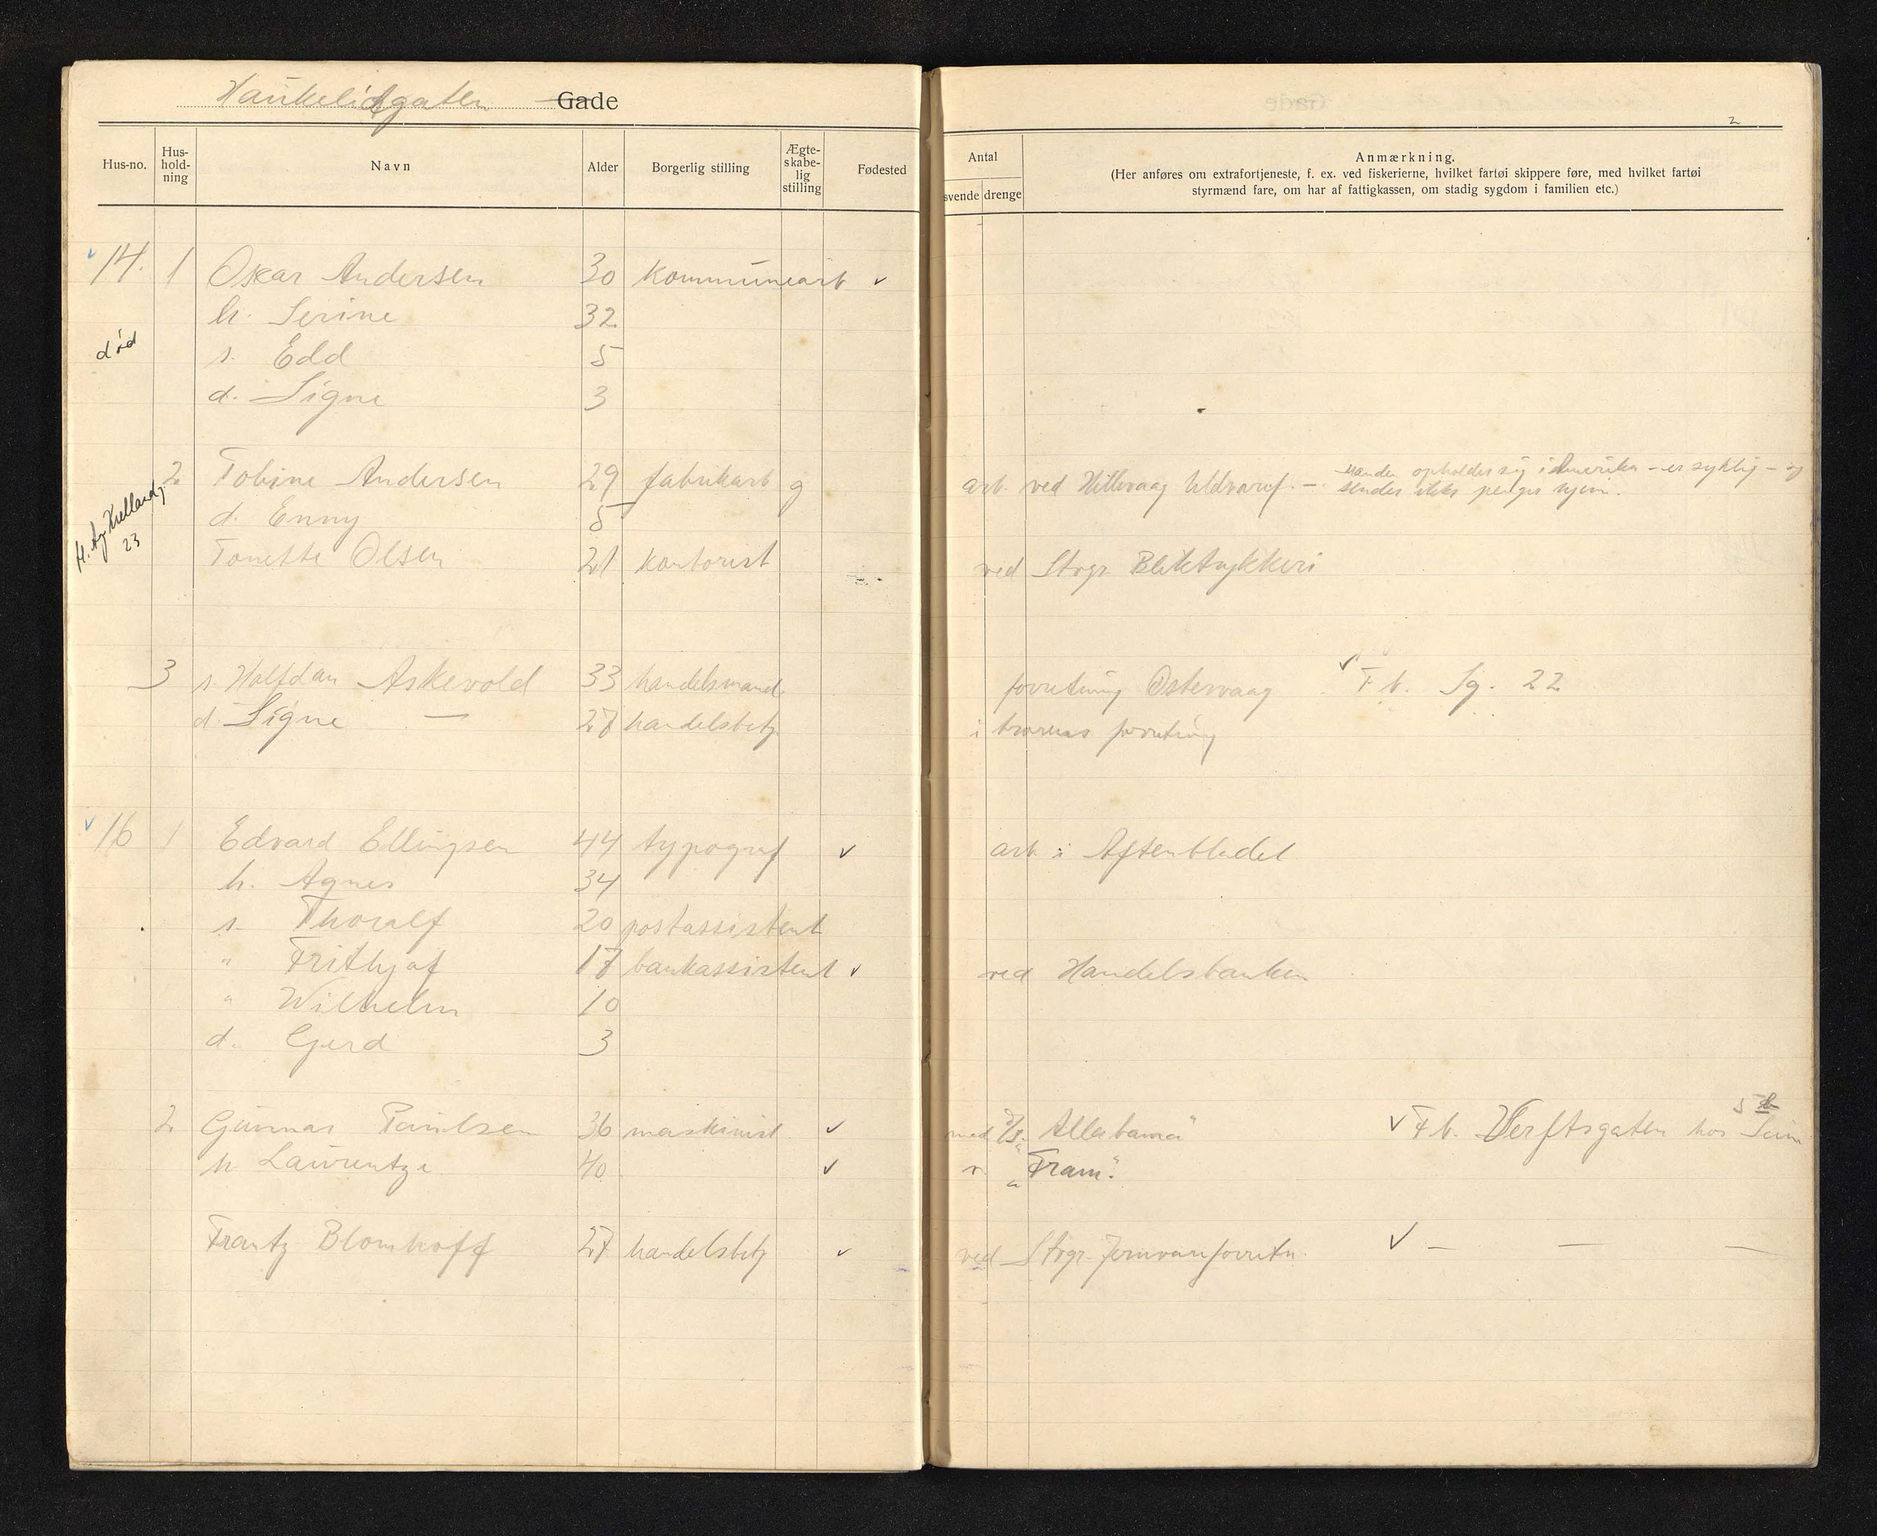 Haukelidgaten Gade
2
Hus-no. Hus-hold-ning Navn Alder Borgerlig stilling Ægte-skabe-lig stilling Fødested
Antal svende drenge
Anmærkning.
(Her anføres om extrafortjeneste, f. ex. ved fiskerierne, hvilket fartøi skippere føre, med hvilket fartøi
styrmænd fare, om har af fattigkassen, om stadig sygdom i familien etc.)
14. 1 Oskar Andersen 30 kommunearb ✓
h. Serine 32
død s. Edd 5
d. Signe 3
2 Tobine Andersen 29 fabrikarb g arb. ved Hillevaag Uldvaref. — manden opholder sig i Amerika - er syklig - og
sender ikke penger hjem.
H. Ax Kiellandg. 23
d. Enny 5
Tonette Olsen 21 kontorist ved Stvgr Bliktrykkeri
3 s. Halfdan Askevold 33 handelsmand forretning Østervaag ✓ F b. Sg. 22
d. Signe — 27 handelsbetj i brorens forretning
16 1 Edvard Ellingsen 44 typograf ✓ arb i Aftenbladet
h. Agnes 34
s. Thoralf 20 postassistent
" Frithjof 17 bankassistent ✓ ved Handelsbanken
" Wilhelm 10
d. Gerd 3
2 Gunnar Paulsen 36 maskinist ✓ med D/s. "Allabama" ✓ F b. Verftsgaten 5 hos
h Laurentze 40 ✓ "Fram".
Frantz Blomhoff 27 handelsbetj ✓ ved Stvgr Jernvareforretn. ✓ — — —